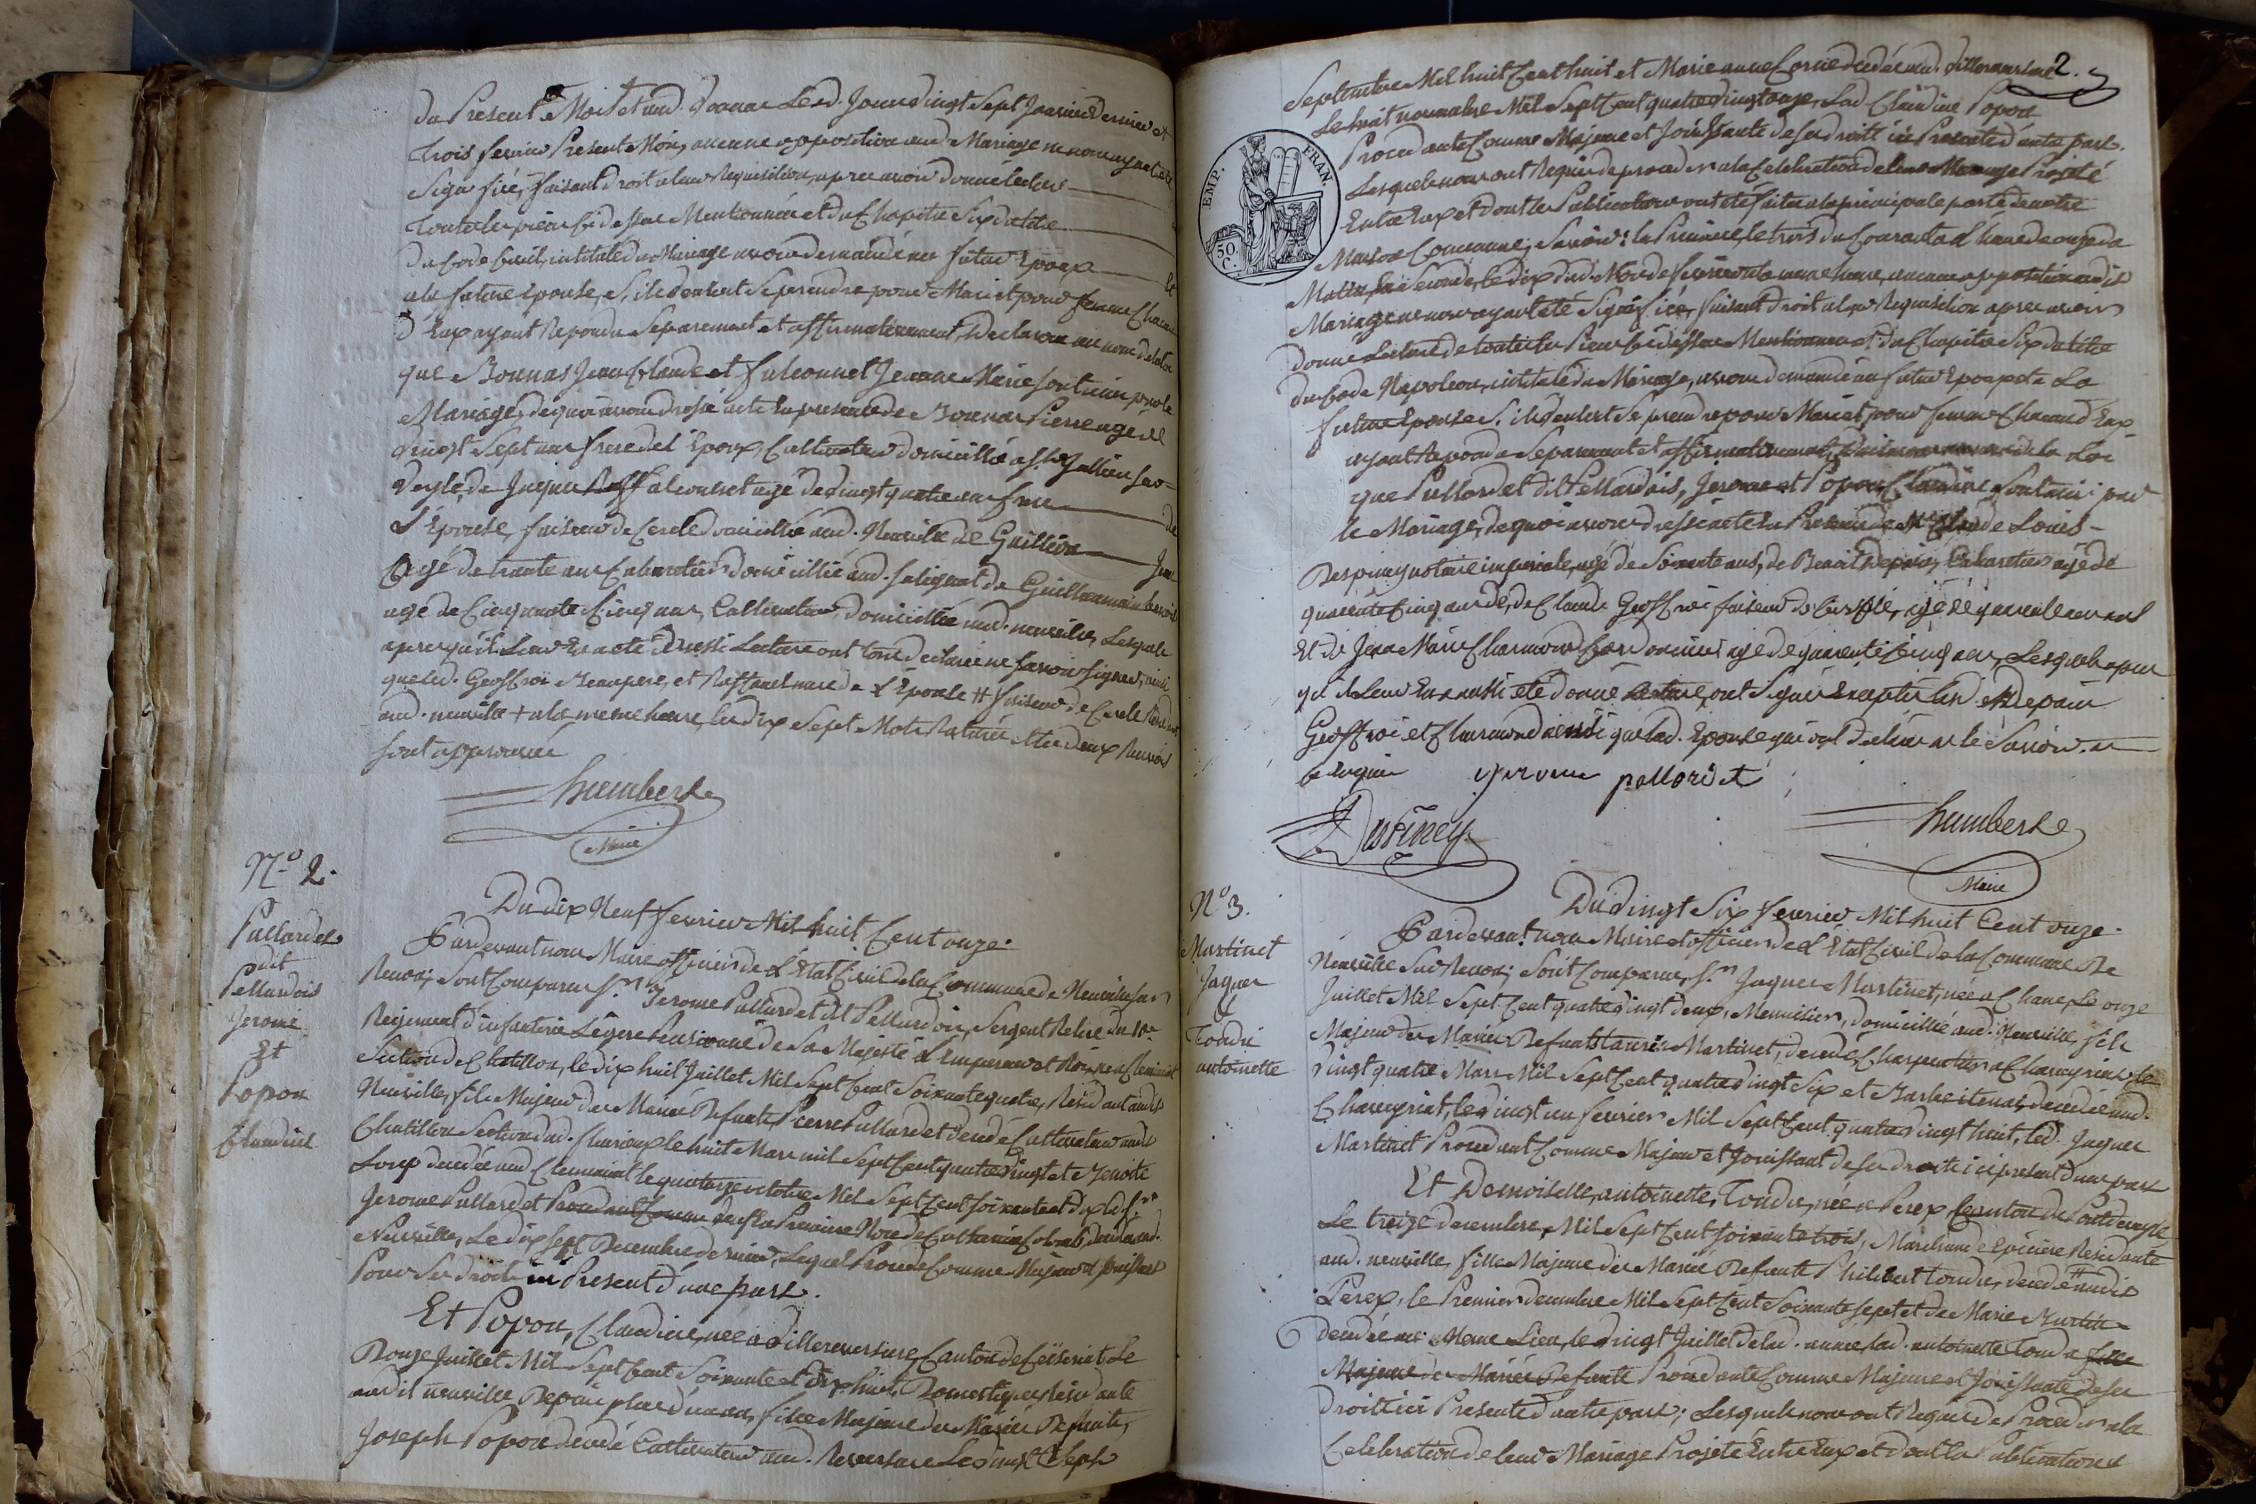 du Présent Mois et aud. Jour vingt Sept Janvier dernier et
trois fevrier Présent Mois, aucune opposition aud Mariage ne nous ayant été
Signifiée, faisant droit a leur Requisition, apres avoir donné lecture
Toutes les pieces ci dessus Mentionnées et du Chapitre Six du titre
du Code Civil, intitulé du Mariage avons demandé au futur Epoux
a la future Epouse, S'ils veulent Se prendre pour Mari et pour femme Chacun
d'Eux ayant Repondu Separement et affirmativement, Declarons au nom de la loi
que Bonnas Jean Claude et falconnet Jeanne Marie Sont unis par le
Mariage, de quoi avons dressé acte En presence de Bonnas Pierre agé de
vingt Sept ans frere de l'Epoux, Cultivateur domicilié a St Jullien sur
Veyle, de Jaques falconnet agé de vingt quatre ans frere de
L'Epouse, faiseur de Cercle domicilié aud. Neuville de Guillon
agé de trente ans Cabaretier domicillié aud. de Guillaumain
agé de Cinquante Cinq ans, Cultivateur, domicillié aud. neuville, Lesquels
apres qu'il Leur En a été aussi Lecture ont tous declaré ne Savoir Signer, ainsi
que led. Geoffroi Beaupere, et mere de L'Epouse # faiseur de Cercle
aud. neuville + a la meme heure, les dix Sept Mots Raturés et les deux Renvois
Sont approuvés
humbert
Maire
N.º 2.
Pallardet
dit
Pellardois
Jerome
Et
Popon
Claudine
Du dix Neuf fevrier Mil huit Cent onze.
Pardevant nous Maire officier de L'Etat Civil de la Commune de Neuville sur
Renon; Sont Comparu Sr. Jerome Pallardet dit Pellardois, Sergent Retiré du 10e
Regiment d'infanterie Légere Pensionné de Sa Majesté L'Empereur et Roi, né a Clemenciat
Section de Chatillon, le dix huit Juillet Mil Sept Cent Soixante quatre, Résidant audit
Neuville, fils Majeur des Mariés Defunts Pierre Pallardet decedé Cultivateur audit
Chatillon Section dud. le huit Mars mil Sept Cent quatre vingt et Benoite
Loup decedée aud Clemenciat le quatorze octobre Mil Sept Cent Soixante et dix led. Sr.
Jerome Pallardet Procedant Comme veuf En Premiere Noce de Catherine Colomb, decedée aud.
Neuville, Le dix Sept Decembre dernier, Lequel Procede Comme Majeur et Jouissant
Pour Ses droits ici Present d'une part.
Et Popon, Claudine, née a Villereversure, Canton de Ceiseriat, Le
Douze Juillet Mil Sept Cent Soixante et dix huit, Domestique, Résidante
audit neuville Depuis plus d'un an, fille Majeure des Mariés Defunts,
Joseph Popon decedé Cultivateur aud. Reversure Le vingt Sept
2.
Septembre Mil huit Cent huit et Marie anne Cornu decedée aud. Villereversure
Le huit novembre Mil Sept Cent quatre vingt onze, Lad Claudine Popon
Procedante Comme Majeure et Jouissante de Ses droits ici Presente d'autre part.
Lesquels nous ont Requis de proceder a la Celebration de leur Mariage Projeté
Entre Eux et dont les Publications ont été faites a la principale porte de notre
Maison Commune; Savoir: la Premiere, le trois du Courant a L'heure de onze du
Matin, la Seconde, le dix dud. Mois de fevrier a la meme heure, aucune opposition audit
Mariage ne nous ayant été Signifiée, faisant droit a leur Requisition apres avoir
donné Lecture de toutes les Pieces ci dessus Mentionnées et du Chapitre Six du titre
du Code Napoleon, intitulé du Mariage, avons demandé au futur Epoux et a La
future Epouse S'ils veulent Se prendre pour Mari et pour femme Chacun d'Eux
ayant Repondu Separement et affirmativement, de la Loi
que Pallardet dit Pellardois, Jerome et Popon Claudine Sont unis par
le Mariage, de quoi avons dressé acte En Presence de Mr Claude Louis
Despiney notaire imperiale, agé de Soixante ans, de Benoit Depuis, Cabaretier agé de
quarante Cinq ans, de Claude Geoffroi faiseur de Cercle, agé de quarante ans
Et de Jean Marie Charmond Cordonnier agé de quarante Cinq ans, Lesquels apres
qu'il Leur En a aussi été donné Lecture, ont Signé Excepté lesd
Geoffroi et Charmond ainsi que lad. Epouse qui ont Declaré ne le Savoir
ce Requis jerome pallardet
Despiney
humbert
Maire
EMP. FRAN.
50 C.
Nº 3.
Martinet
Jaques
&
Tondu
antoinette
Du vingt Six fevrier Mil huit Cent onze.
Pardevant nous Maire et officier de L'Etat Civil de la Commune De
Neuville Sur Renon; Sont Comparus, Sr. Jaques Martinet, né a Chane Le onze
Juillet Mil Sept Cent quatre vingt deux, Menuisier, domicillié aud. Neuville, fils
Majeur des Mariés Defunts Martinet, decedé Charpentier a Chaveyriat le
vingt quatre Mars Mil Sept Cent quatre vingt Six et decedée aud.
Chaveyriat, le vingt un fevrier Mil Sept Cent quatre vingt huit, led. Jaques
Martinet Procedant Comme Majeur et Jouissant de Ses droits ici present d'une part
Et Demoiselle, antoinette, Tondu, née a Perex, Canton de Pontdeveyle
Le treize decembre, Mil Sept Cent Soixante trois, Marchande Epiciere Residante
aud. neuville, fille Majeure des Mariés Defunts Philibert tondu, decedé audit
Perex, le Premier decembre Mil Sept Cent Soixante sept et de Marie Martin
decedée au Meme Lieu, le vingt Juillet de lad. année, lad. antoinette Tondu fille
Majeure des Mariés Defunts Procedante Comme Majeure et Jouissante de Ses
Droits ici Presente d'autre part; Lesquels nous ont Requis de Proceder a la
Celebration de leur Mariage Projeté Entre Eux et dont les Publications